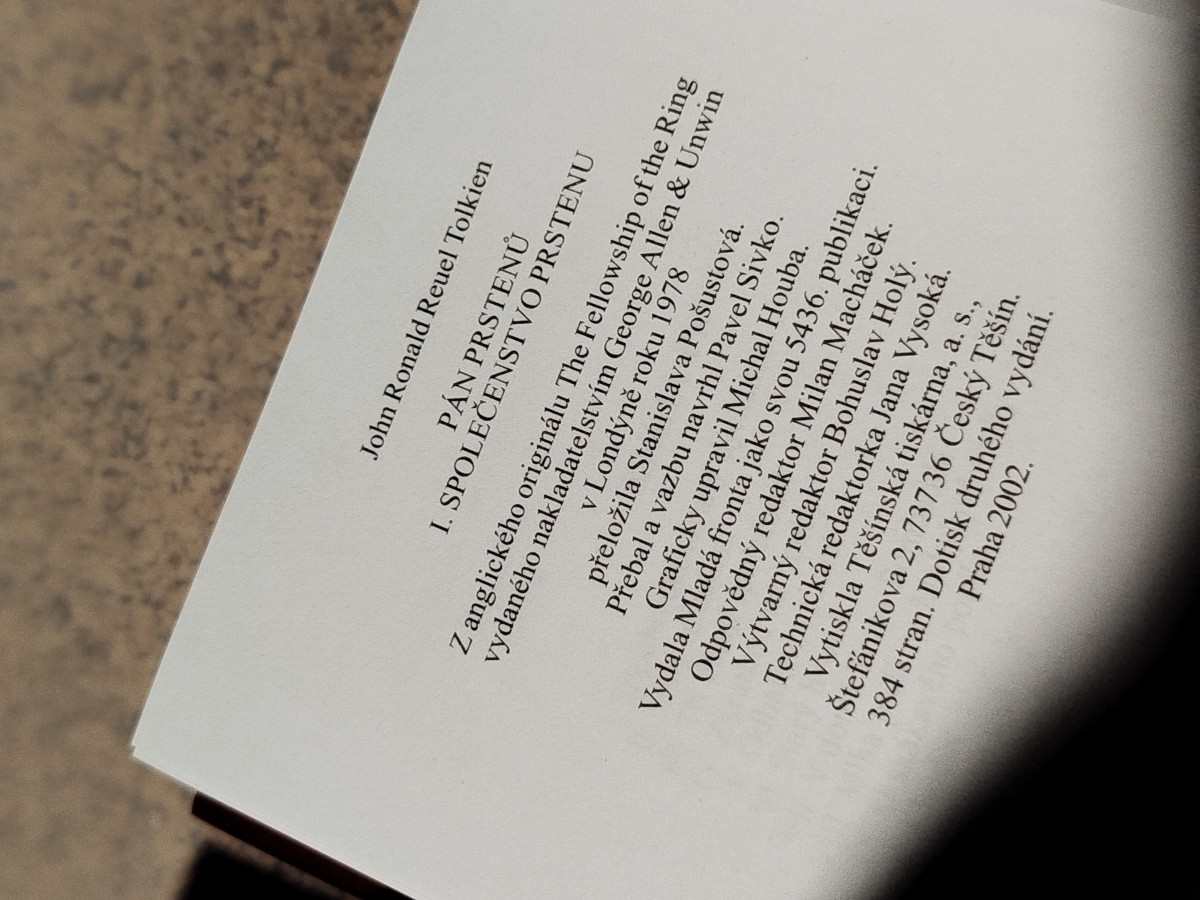 John Ronald Reuel Tolkien
PÁN PRSTENŮ
I. SPOLEČENSTVO PRSTENU
Z anglického originálu The Fellowship of the Ring
vydaného nakladatelstvím George Allen & Unwin
v Londýně roku 1978
přeložila Stanislava Pošustová.
Přebal a vazbu navrhl Pavel Sivko.
Graficky upravil Michal Houba.
Vydala Mladá fronta jako svou 5436. publikaci.
Odpovědný redaktor Milan Macháček.
Výtvarný redaktor Bohuslav Holý.
Technická redaktorka Jana Vysoká.
Vytiskla Těšínská tiskárna, a. s.,
Štefánikova 2, 73736 Český Těšín.
384 stran. Dotisk druhého vydání.
Praha 2002.